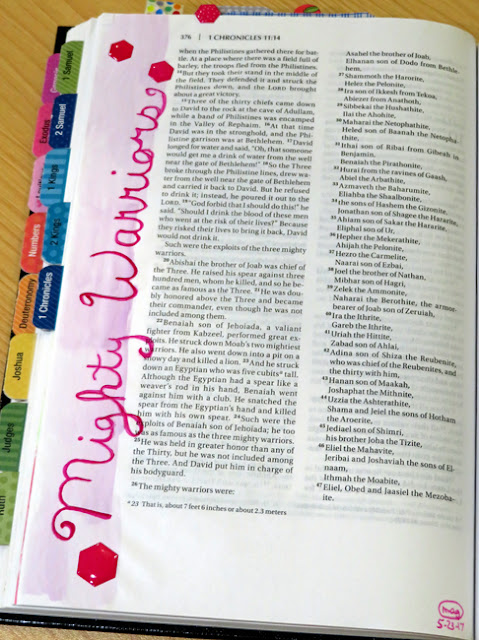 376 | 1 CHRONICLES 11:14
when the Philistines gathered there for bat-
tle. At a place where there was a field full of
barley, the troops fled from the Philistines.
14 But they took their stand in the middle of
the field. They defended it and struck the
Philistines down, and the LORD brought
about a great victory.
15 Three of the thirty chiefs came down
to David to the rock at the cave of Adullam,
while a band of Philistines was encamped
in the Valley of Rephaim. 16 At that time
David was in the stronghold, and the Phi-
listine garrison was at Bethlehem. 17 David
longed for water and said, "Oh, that someone
would get me a drink of water from the well
near the gate of Bethlehem!" 18 So the Three
broke through the Philistine lines, drew wa-
ter from the well near the gate of Bethlehem
and carried it back to David. But he refused
to drink it; instead, he poured it out to the
LORD. 19 "God forbid that I should do this!" he
said. "Should I drink the blood of these men
who went at the risk of their lives?" Because
they risked their lives to bring it back, David
would not drink it.
Such were the exploits of the three mighty
warriors.
20 Abishai the brother of Joab was chief of
the Three. He raised his spear against three
hundred men, whom he killed, and so he be-
came as famous as the Three. 21 He was dou-
bly honored above the Three and became
their commander, even though he was not
included among them.
22 Benaiah son of Jehoiada, a valiant
fighter from Kabzeel, performed great ex-
ploits. He struck down Moab's two mightiest
warriors. He also went down into a pit on a
snowy day and killed a lion. 23 And he struck
down an Egyptian who was five cubits a tall.
Although the Egyptian had a spear like a
weaver's rod in his hand, Benaiah went
against him with a club. He snatched the
spear from the Egyptian's hand and killed
him with his own spear. 24 Such were the
exploits of Benaiah son of Jehoiada; he too
was as famous as the three mighty warriors.
25 He was held in greater honor than any of
the Thirty, but he was not included among
the Three. And David put him in charge of
his bodyguard.
26 The mighty warriors were:
a 23 That is, about 7 feet 6 inches or about 2.3 meters
Asahel the brother of Joab,
Elhanan son of Dodo from Bethle-
hem,
27 Shammoth the Harorite,
Helez the Pelonite,
28 Ira son of Ikkesh from Tekoa,
Abiezer from Anathoth,
29 Sibbekai the Hushathite,
Ilai the Ahohite,
30 Maharai the Netophathite,
Heled son of Baanah the Netopha-
thite,
31 Ithai son of Ribai from Gibeah in
Benjamin,
Benaiah the Pirathonite,
32 Hurai from the ravines of Gaash,
Abiel the Arbathite,
33 Azmaveth the Baharumite,
Eliahba the Shaalbonite,
34 the sons of Hashem the Gizonite,
Jonathan son of Shagee the Hararite,
35 Ahiam son of Sakar the Hararite,
Eliphal son of Ur,
36 Hepher the Mekerathite,
Ahijah the Pelonite,
37 Hezro the Carmelite,
Naarai son of Ezbai,
38 Joel the brother of Nathan,
Mibhar son of Hagri,
39 Zelek the Ammonite,
Naharai the Berothite, the armor-
bearer of Joab son of Zeruiah,
40 Ira the Ithrite,
Gareb the Ithrite,
41 Uriah the Hittite,
Zabad son of Ahlai,
42 Adina son of Shiza the Reubenite,
who was chief of the Reubenites, and
the thirty with him,
43 Hanan son of Maakah,
Joshaphat the Mithnite,
44 Uzzia the Ashterathite,
Shama and Jeiel the sons of Hotham
the Aroerite,
45 Jediael son of Shimri,
his brother Joha the Tizite,
46 Eliel the Mahavite,
Jeribai and Joshaviah the sons of El-
naam,
Ithmah the Moabite,
47 Eliel, Obed and Jaasiel the Mezoba-
ite.
Mighty Warriors
1 Samuel
2 Samuel
Exodus
1 Kings
2 Kings
Numbers
1 Chronicles
Deuteronomy
Joshua
Judges
Ruth
5-23-17